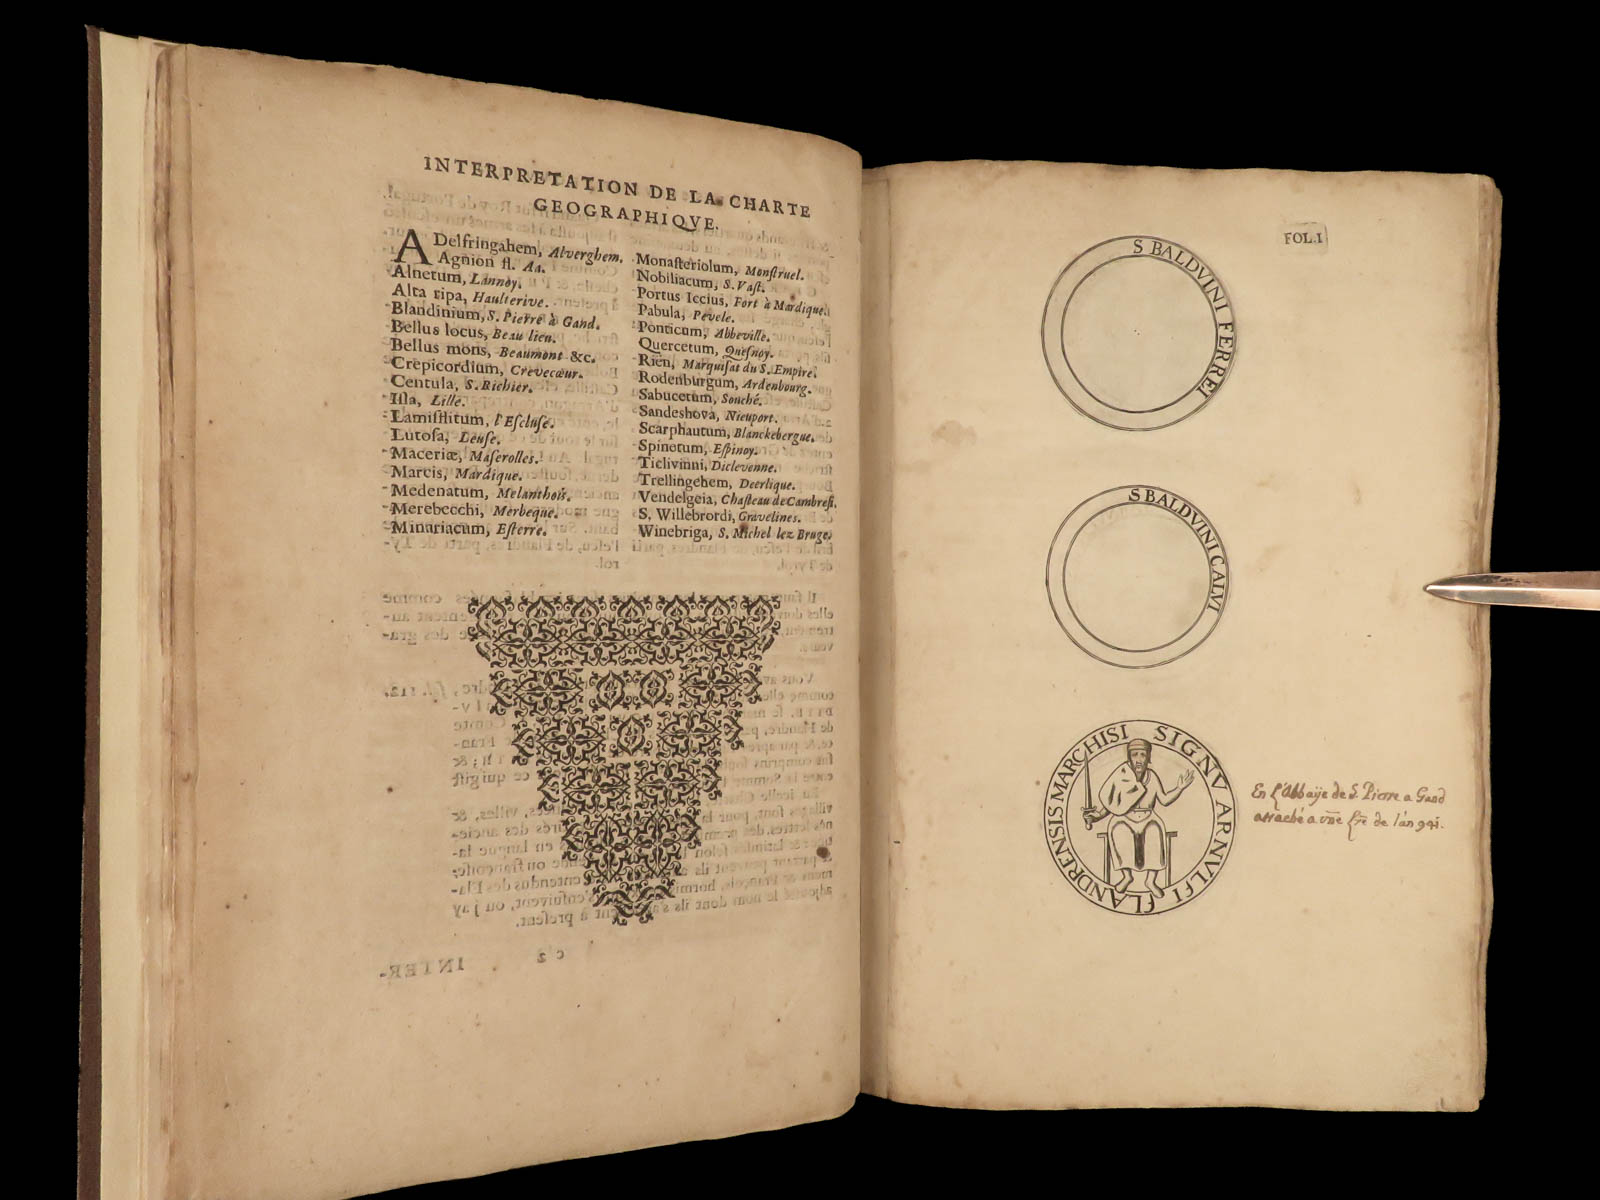 INTERPRETATION DE LA CHARTE
GEOGRAPHIQVE.
ADelfringahem, Alverghem.
Agnion fl. Aa.
Alnetum, Lannoy.
Alta ripa, Haulterive.
Blandinium, S. Pierre à Gand.
Bellus locus, Beau lieu.
Bellus mons, Beaumont &c.
Crepicordium, Crevecœur.
Centula, S. Richier.
Isla, Lille.
Lamisflitum, l'Escluse.
Lutosa, Leuse.
Maceriæ, Maserolles.
Marcis, Mardique.
Medenatum, Melanthois.
Merebecchi, Merbeque.
Minariacum, Esterre.
Monasteriolum, Monstruel.
Nobiliacum, S. Vast.
Portus Iccius, Fort à Mardique.
Pabula, Pevele.
Ponticum, Abbeville.
Quercetum, Quesnoy.
Rien, Marquisat du S. Empire.
Rodenburgum, Ardenbourg.
Sabucetum, Souché.
Sandeshova, Nieuport.
Scarphautum, Blanckebergue.
Spinetum, Espinoy.
Ticlivinni, Diclevenne.
Trellingehem, Deerlique.
Vendelgeia, Chasteau de Cambresi.
S. Willebrordi, Gravelines.
Winebriga, S. Michel lez Bruge.
FOL.I
S BALDVINI FERREI
S BALDVINI CALVI
SIGNV ARNVLFI FLANDRENSIS MARCHISI
En l'Abbaye de S. Pierre a Gand
attaché a vne lre de l'an 941.